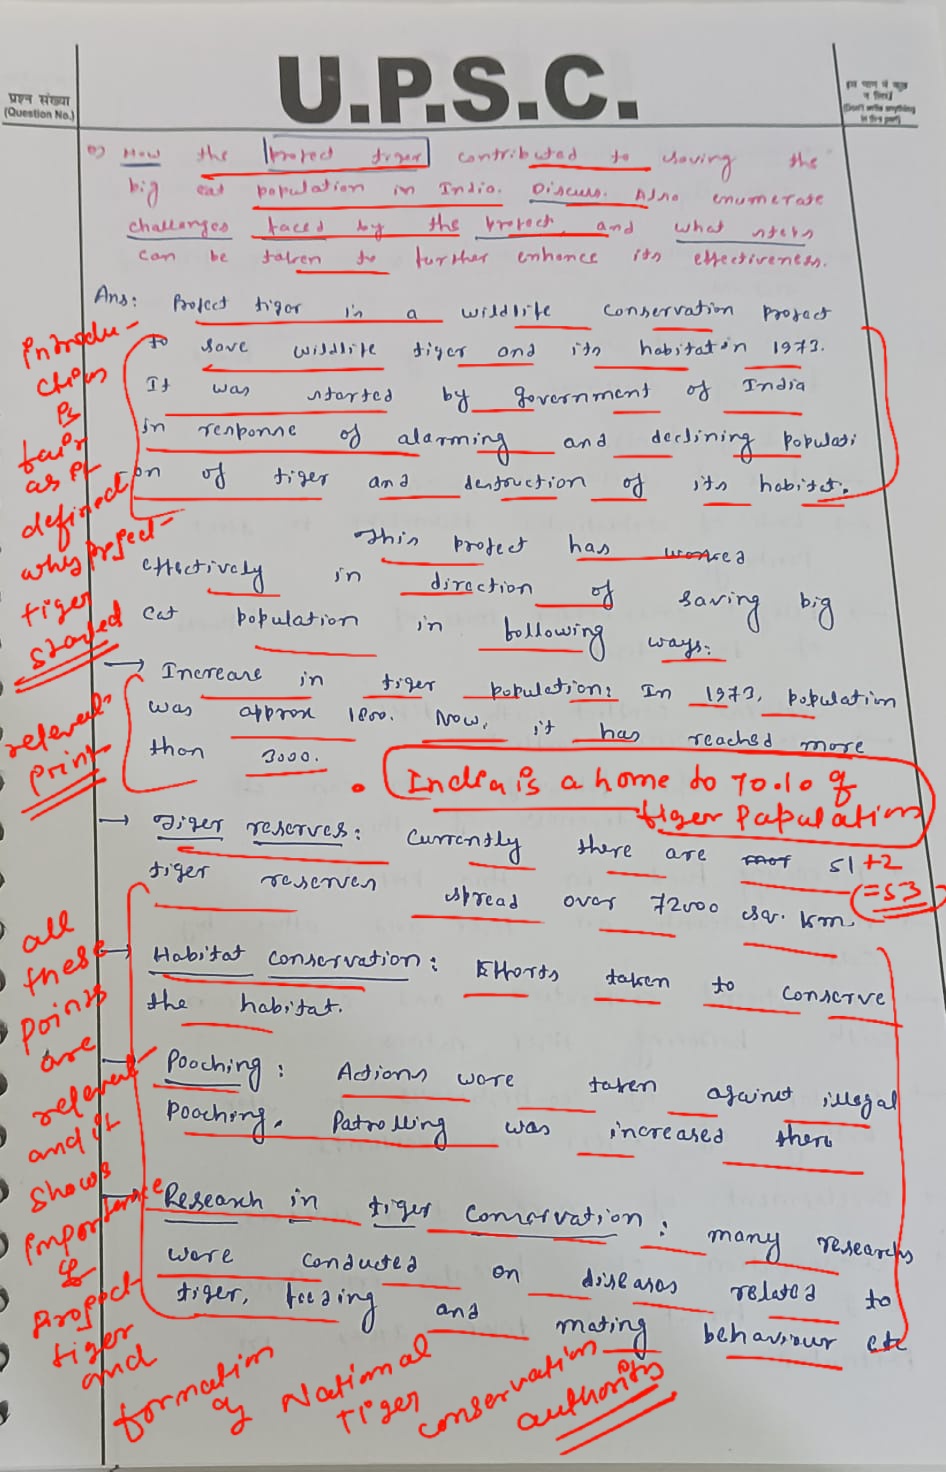 U.P.S.C.
प्रश्न संख्या
(Question No.)
(Don't write anything
in this part)
How the project tiger contributed to saving the
big cat population in India. Discuss. Also enumerate
challenges faced by the project, and what steps
can be taken to further enhance its effectiveness.
Ans: Project tiger is a wildlife conservation project
to save wildlife tiger and its habitat in 1973.
It was started by government of India
in response of alarming and declining populati
-on of tiger and destruction of its habitat.
Introdu-
ction
is
fair
as it
defined
why project
tiger
started
This project has worked
effectively in direction of saving big
cat population in following ways:
→ Increase in tiger population: In 1973, population
was approx 1800. Now, it has reached more
than 3000.
relevant
point
• India is a home to 70.10 of
tiger Papulation
→ Tiger reserves: Currently there are 51 +2
=53
tiger reserves spread over 72000 sq. km.
→ Habitat conservation: Efforts taken to conserve
the habitat.
→ Pooching: Actions were taken against illegal
Pooching. Patrolling was increased there
→ Research in tiger conservation: many research
were conducted on diseases related to
tiger, feeding and mating behaviour etc
all
these
points
are
relevant
and it
shows
importance
of
project
tiger
and
formation
of National
tiger
conservation
authority